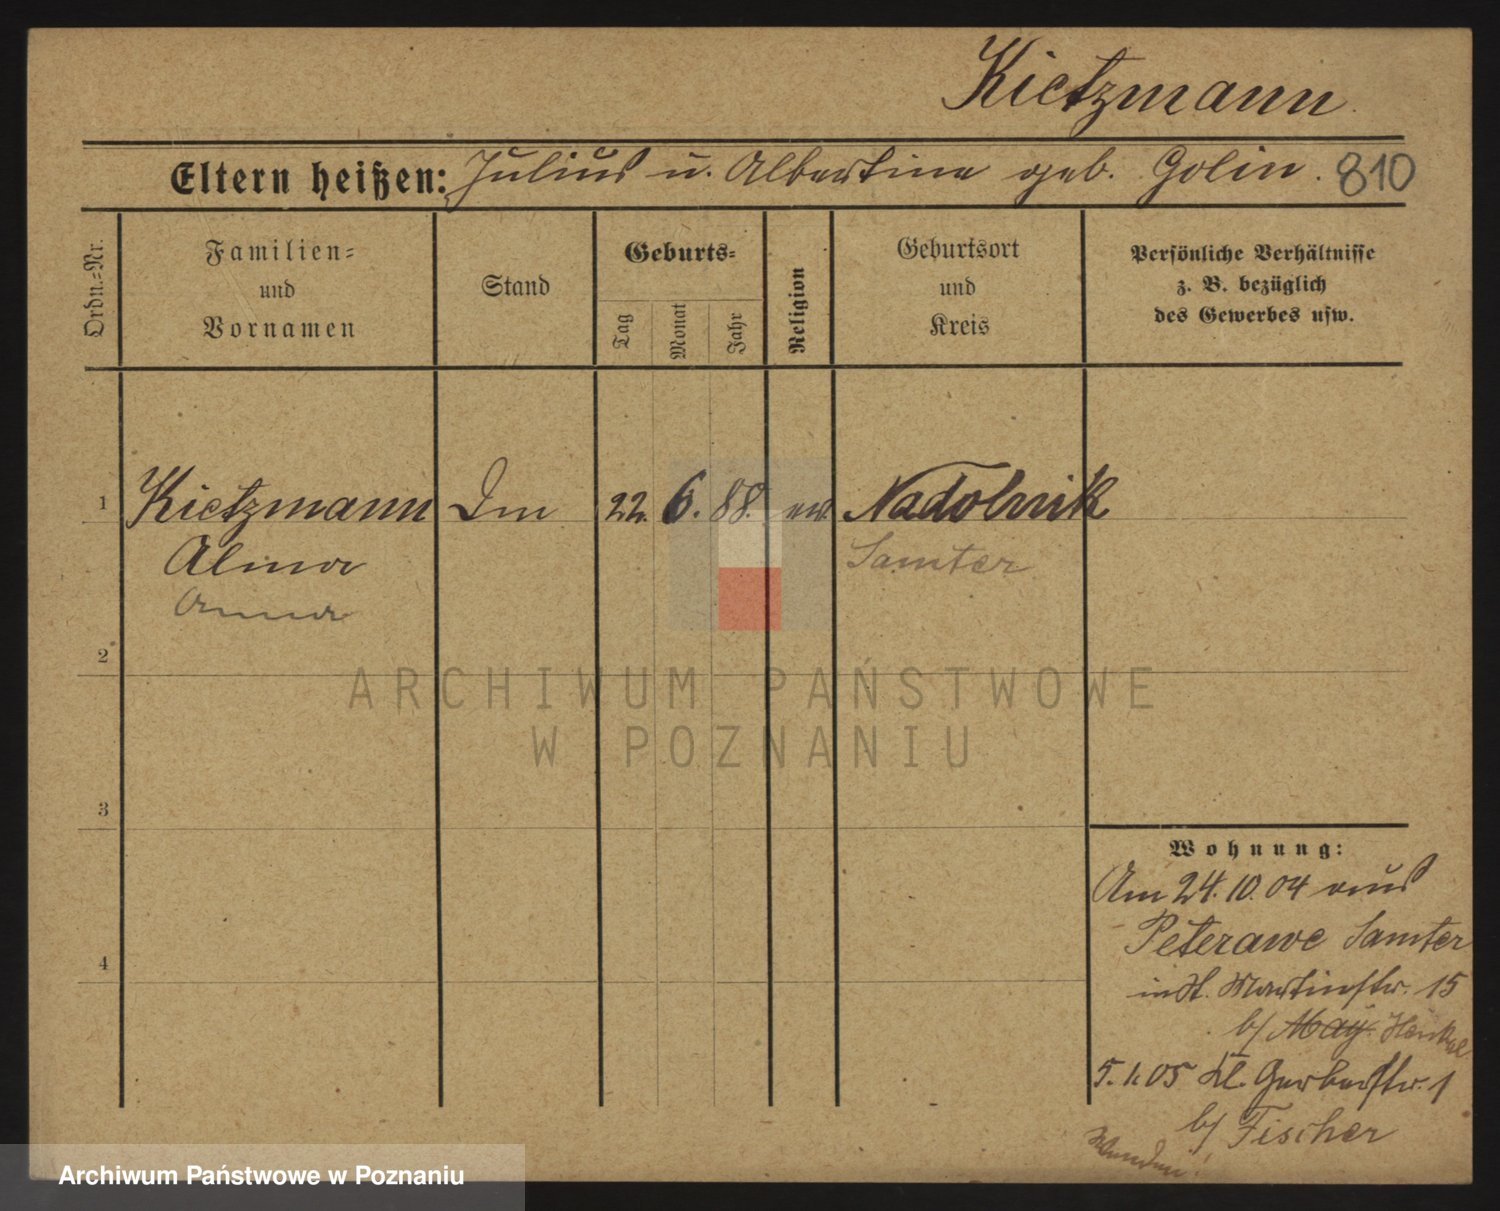 Kietzmann.
Eltern heißen: Julius u. Albertine geb. Golin. 810
Ordn.=Nr.
Familien=
und
Vornamen
Stand
Geburts=
Tag
Monat
Jahr
Religion
Geburtsort
und
Kreis
Persönliche Verhältnisse
z. B. bezüglich
des Gewerbes usw.
1 Kietzmann 22. 6. 88. ev. Nadolnik
Alma Samter
Anna
2
3
4
Wohnung:
Am 24.10.04 aus
Peterawe Samter
in St. Martinstr. 15
b/ May Henkel
5.1.05 Kl. Gerberstr. 1
b/ Fischer
Wenden!
ARCHIWUM PAŃSTWOWE
W POZNANIU
Archiwum Państwowe w Poznaniu